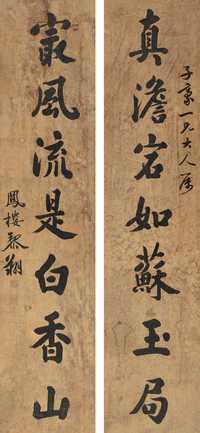 子一兄大人屬
真澹宕如蘇玉局
最風流是白香山
鳳樓翔